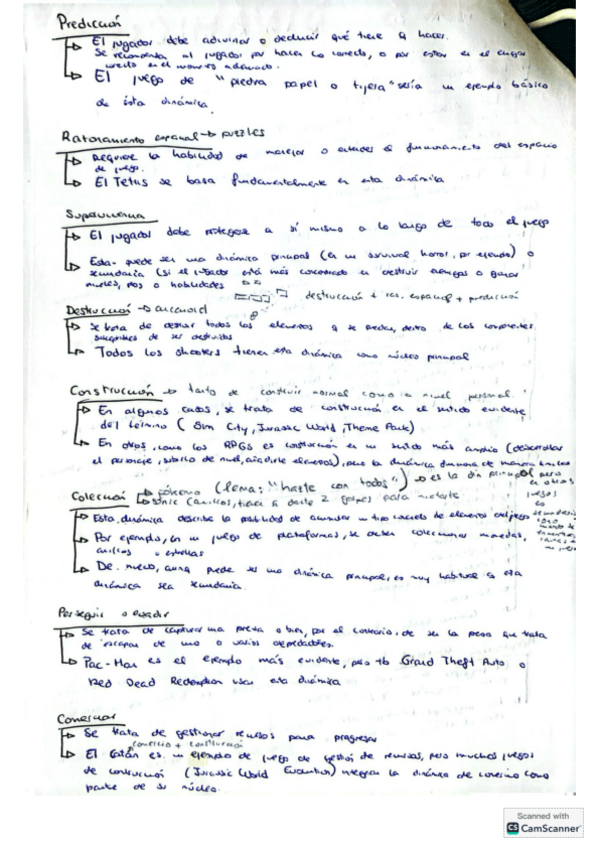 Predicción
El jugador debe adivinar o deducir qué tiene q hacer.
Se recompensa al jugador por hacer lo correcto, o por estar en el lugar
correcto en el momento adecuado.
El juego de "piedra papel o tijera" sería un ejemplo básico
de ésta dinámica
Razonamiento espacial → puzzles
Requiere la habilidad de manejar o entender el funcionamiento del espacio
de juego.
El Tetris se basa fundamentalmente en esta dinámica
Supervivencia
El jugador debe protegerse a sí mismo a lo largo de todo el juego
Esta puede ser una dinámica principal (en un survival horror, por ejemplo) o
secundaria (si el jugador está más concentrado en destruir enemigos o ganar
niveles, pos o habilidades
destrucción + raz. espacial + predicción
Destrucción → arcanoid
Se trata de destruir todos los elementos q se puedan, dentro de los componentes
susceptibles de ser destruidos
Todos los shooters tienen esta dinámica como núcleo principal
Construcción → tanto de construir normal como a nivel personal.
En algunos casos, se trata de construcción en el sentido evidente
del término (Sim City, Jurassic World, Theme Park)
En otros, como los RPGs es construcción en un sentido más amplio (desarrollar
el personaje, subirlo de nivel, añadirle elementos), pero la dinámica funciona de manera
Colección → pókemo (lema: "hazte con todos") → es la din principal pero
sonic (anillos, tienes q darte 2 golpes para matarte
en otros
juegos
es
secundaria
Esta dinámica describe la posibilidad de acumular un tipo concreto de elementos del juego
Por ejemplo, en un juego de plataformas, se deben coleccionar monedas,
anillos o estrellas
De nuevo, aunq puede ser una dinámica principal, es muy habitual q esta
dinámica sea secundaria.
Perseguir o evadir
Se trata de capturar una presa o bien, por el contrario, de ser la presa que trata
de escapar de uno o varios depredadores.
Pac-Man es el ejemplo más evidente, pero tb Grand Theft Auto o
Red Dead Redemption usan esta dinámica
Comerciar
Se trata de gestionar recursos para progresar
comercio + construcción
El Catán es un ejemplo de juego de gestión de recursos, pero muchos juegos
de construcción (Jurassic World Evolution) integran la dinámica de comercio como
parte de su núcleo.
Scanned with
CS CamScanner